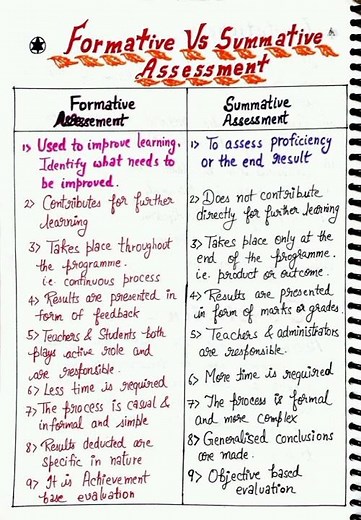 Formative Vs Summative
Assessment
Formative
Assessement
1> Used to improve learning.
Identify what needs to
be improved.
2> Contributes for further
learning
3> Takes place throughout
the programme.
i.e. continuous process
4> Results are presented in
form of feedback
5> Teachers & Students both
plays active role and
are responsible.
6> Less time is required
7> The process is casual &
informal and simple
8> Results deducted are
specific in nature
9> It is Achievement
base evaluation
Summative
Assessment
1> To assess proficiency
or the end result
2> Does not contribute
directly for further learning
3> Takes place only at the
end of the programme.
i.e. product or outcome.
4> Results are presented
in form of marks or grades.
5> Teachers & administrators
are responsible.
6> More time is required
7> The process is formal
and more complex
8> Generalised conclusions
are made.
9> Objective based
evaluation